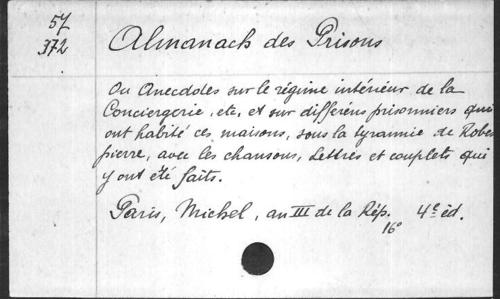 57
372
Almanach des Prisons
Ou Anecdotes sur le régime intérieur de la
Conciergerie, etc, et sur différens prisonniers qui
ont habité ces maisons, sous la tyrannie de Robes
pierre, avec les chansons, Lettres et couplets qui
y ont été faits.
Paris, Michel, an III de la Rép. 4e éd.
16°